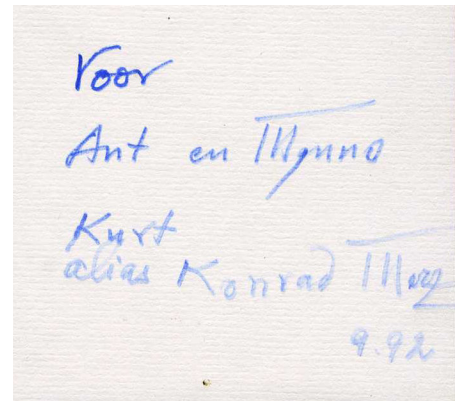 Voor
Ant en Mynno
Kurt
alias Konrad Merz
9.92